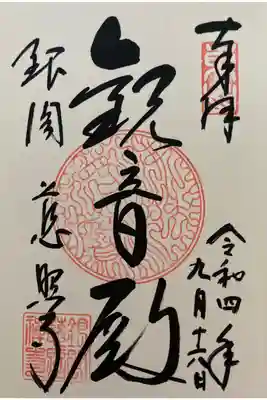 奉拝
令和四年
九月十六日
観音殿
銀閣
慈照寺